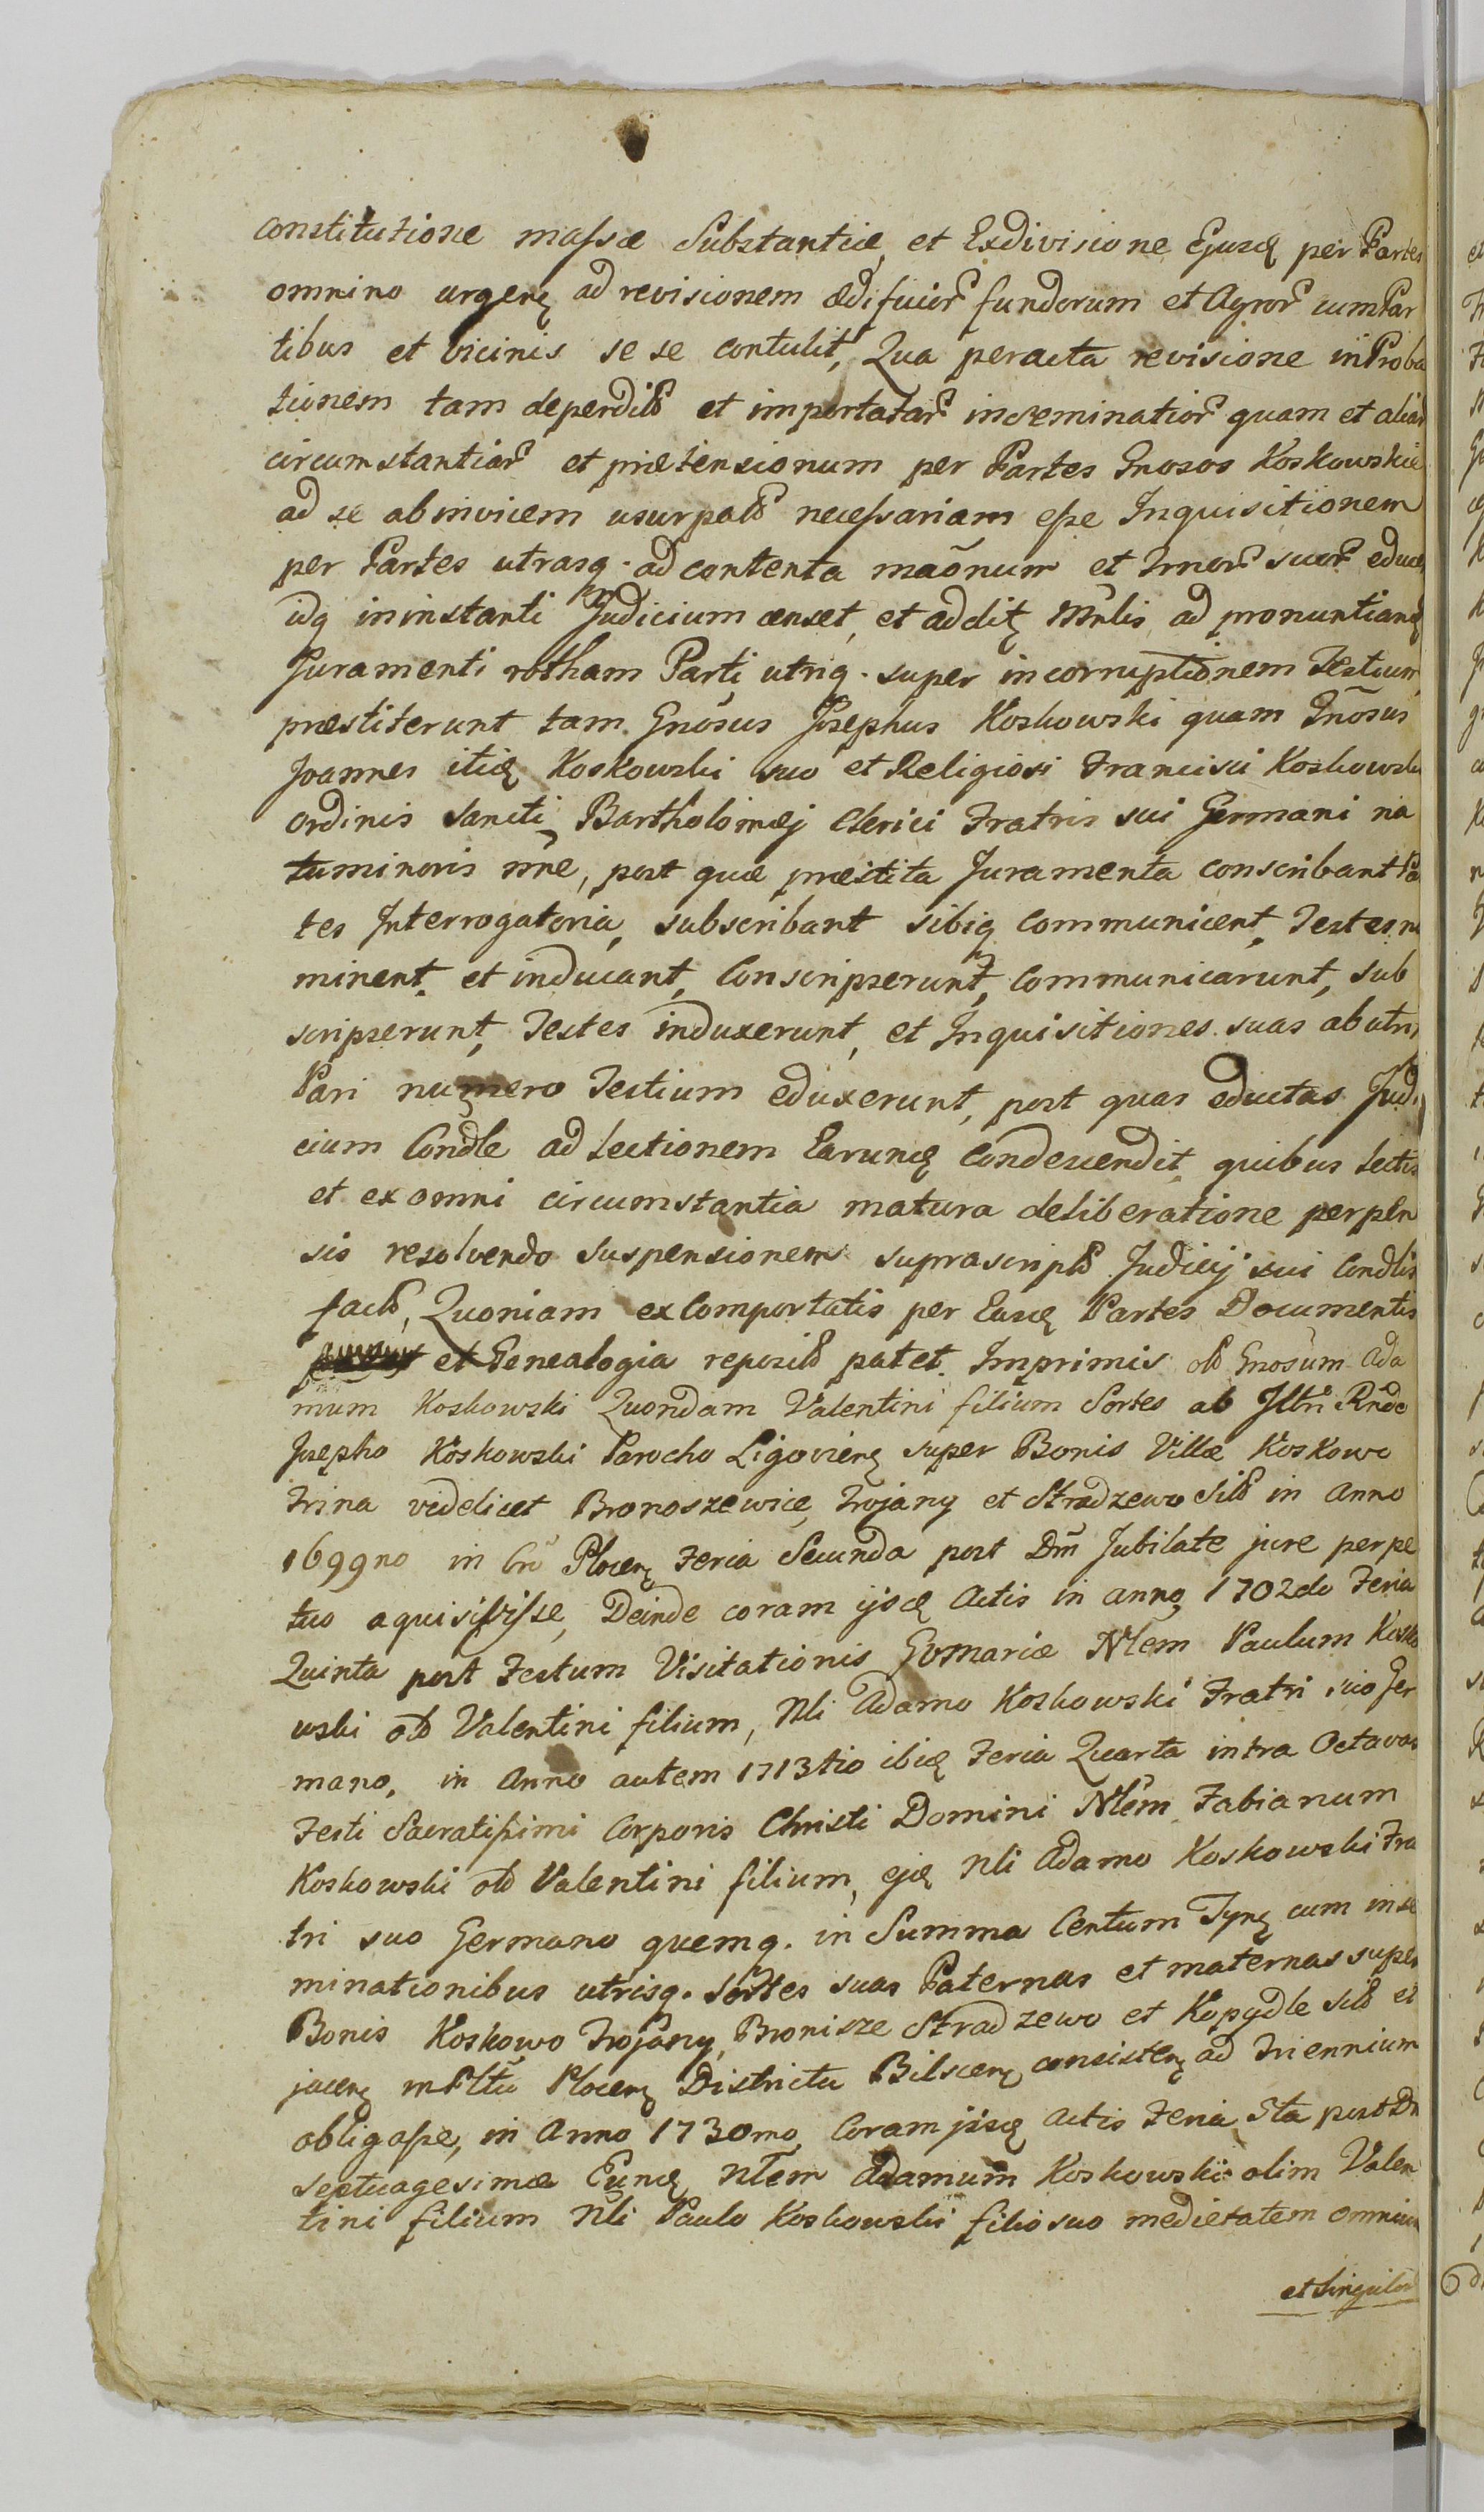 constitutione massæ Substantiæ, et Exdivisione Ejusdę per Partes
omnino urgenę ad revisionem ædificior fundorum et Agror cum Par
tibus et vicinis se se contulit, Qua peracta revisione in Proba
tionem tam deperdit et importatar inseminatior quam et aliar
circumstantiar et prætensionum per Partes Gnosos Koskowskie
ad se abinvicem usurpat necessariam esse Inquisitionem
per Partes utrasq. ad contenta maõnum et Irnor suor educę
idq in instanti Judicium censet, et additę Mnlis ad pronuntiandę
Juramenti rotham Parti utriq. super incorruptionem Testium,
præstiterunt tam Gnosus Josephus Koskowski quam Gnosus
Joannes itidę Koskowski suo et Religiosi Francisci Koskowski
ordinis Sancti Bartholomæj Clerici Fratris sui Germani na
tu minoris nne, post quæ præstita Juramenta conscribant Pa
tes Interrogatoria, subscribant sibiq communicent, Testes no
minent. et inducant, Conscripserunt, Communicarunt, sub
scripserunt, Testes induxerunt, et Inquisitiones suas ab utrą
Pari numero Testium eduxerunt, post quas eductas Judi
cium Condle ad Lectionem Earundę Condescendit, quibus Lectis
et ex omni circumstantia matura deliberatione perpen
sis resolvendo Suspensionem suprascript Judicij sui Condlis
fact, Quoniam ex Comportatis per Easdę Partes Documentis
et Genealogia reposit patet. Imprimis olb Gnosum Ada
mum Koskowski Quondam Valentini filium Sortes ab Jltri Rndo
Josepho Koskowski Parocho Ligovienę super Bonis Villæ Koskowo
Trina videlicet Bronoszewice, Trojany et Stradzewo Sit in Anno
1699no in Cro Plocenę Feria Secunda post Dm Jubilate jure perpe
tuo aquisivisse, Deinde coram ijsdę Actis in anno 1702do Feria
Quinta post Festum Visitationis Gvmariæ Nlem Paulum Kosko
wski olb Valentini filium, Nli Adamo Koskowski Fratri suo Ger
mano, in Anno autem 1713tio ibidę Feria Quarta intra Octavas
Festi Sacratissimi Corporis Christi Domini Nlem Fabianum
Koskowski olb Valentini filium, ejdę Nli Adamo Koskowski Fra
tri suo Germano quemq. in Summa Centum Tynę cum inse
minationibus utrisq. Sortes suas Paternas et maternas super
Bonis Koskowo Trojany, Bronisze Stradzewo et Kopydle sit et
jacenę in Pltu Plocenę Districtu Bilscenę consistenę ad Triennium
obligasse, in Anno 1730mo, Coram ijsdę Actis Feria 5ta post Dn
Septuagesimæ Eundę Nlem Adamum Koskowski olim Valen
tini filium Nli Paulo Koskowski filio suo medietatem omnium
et Singulor